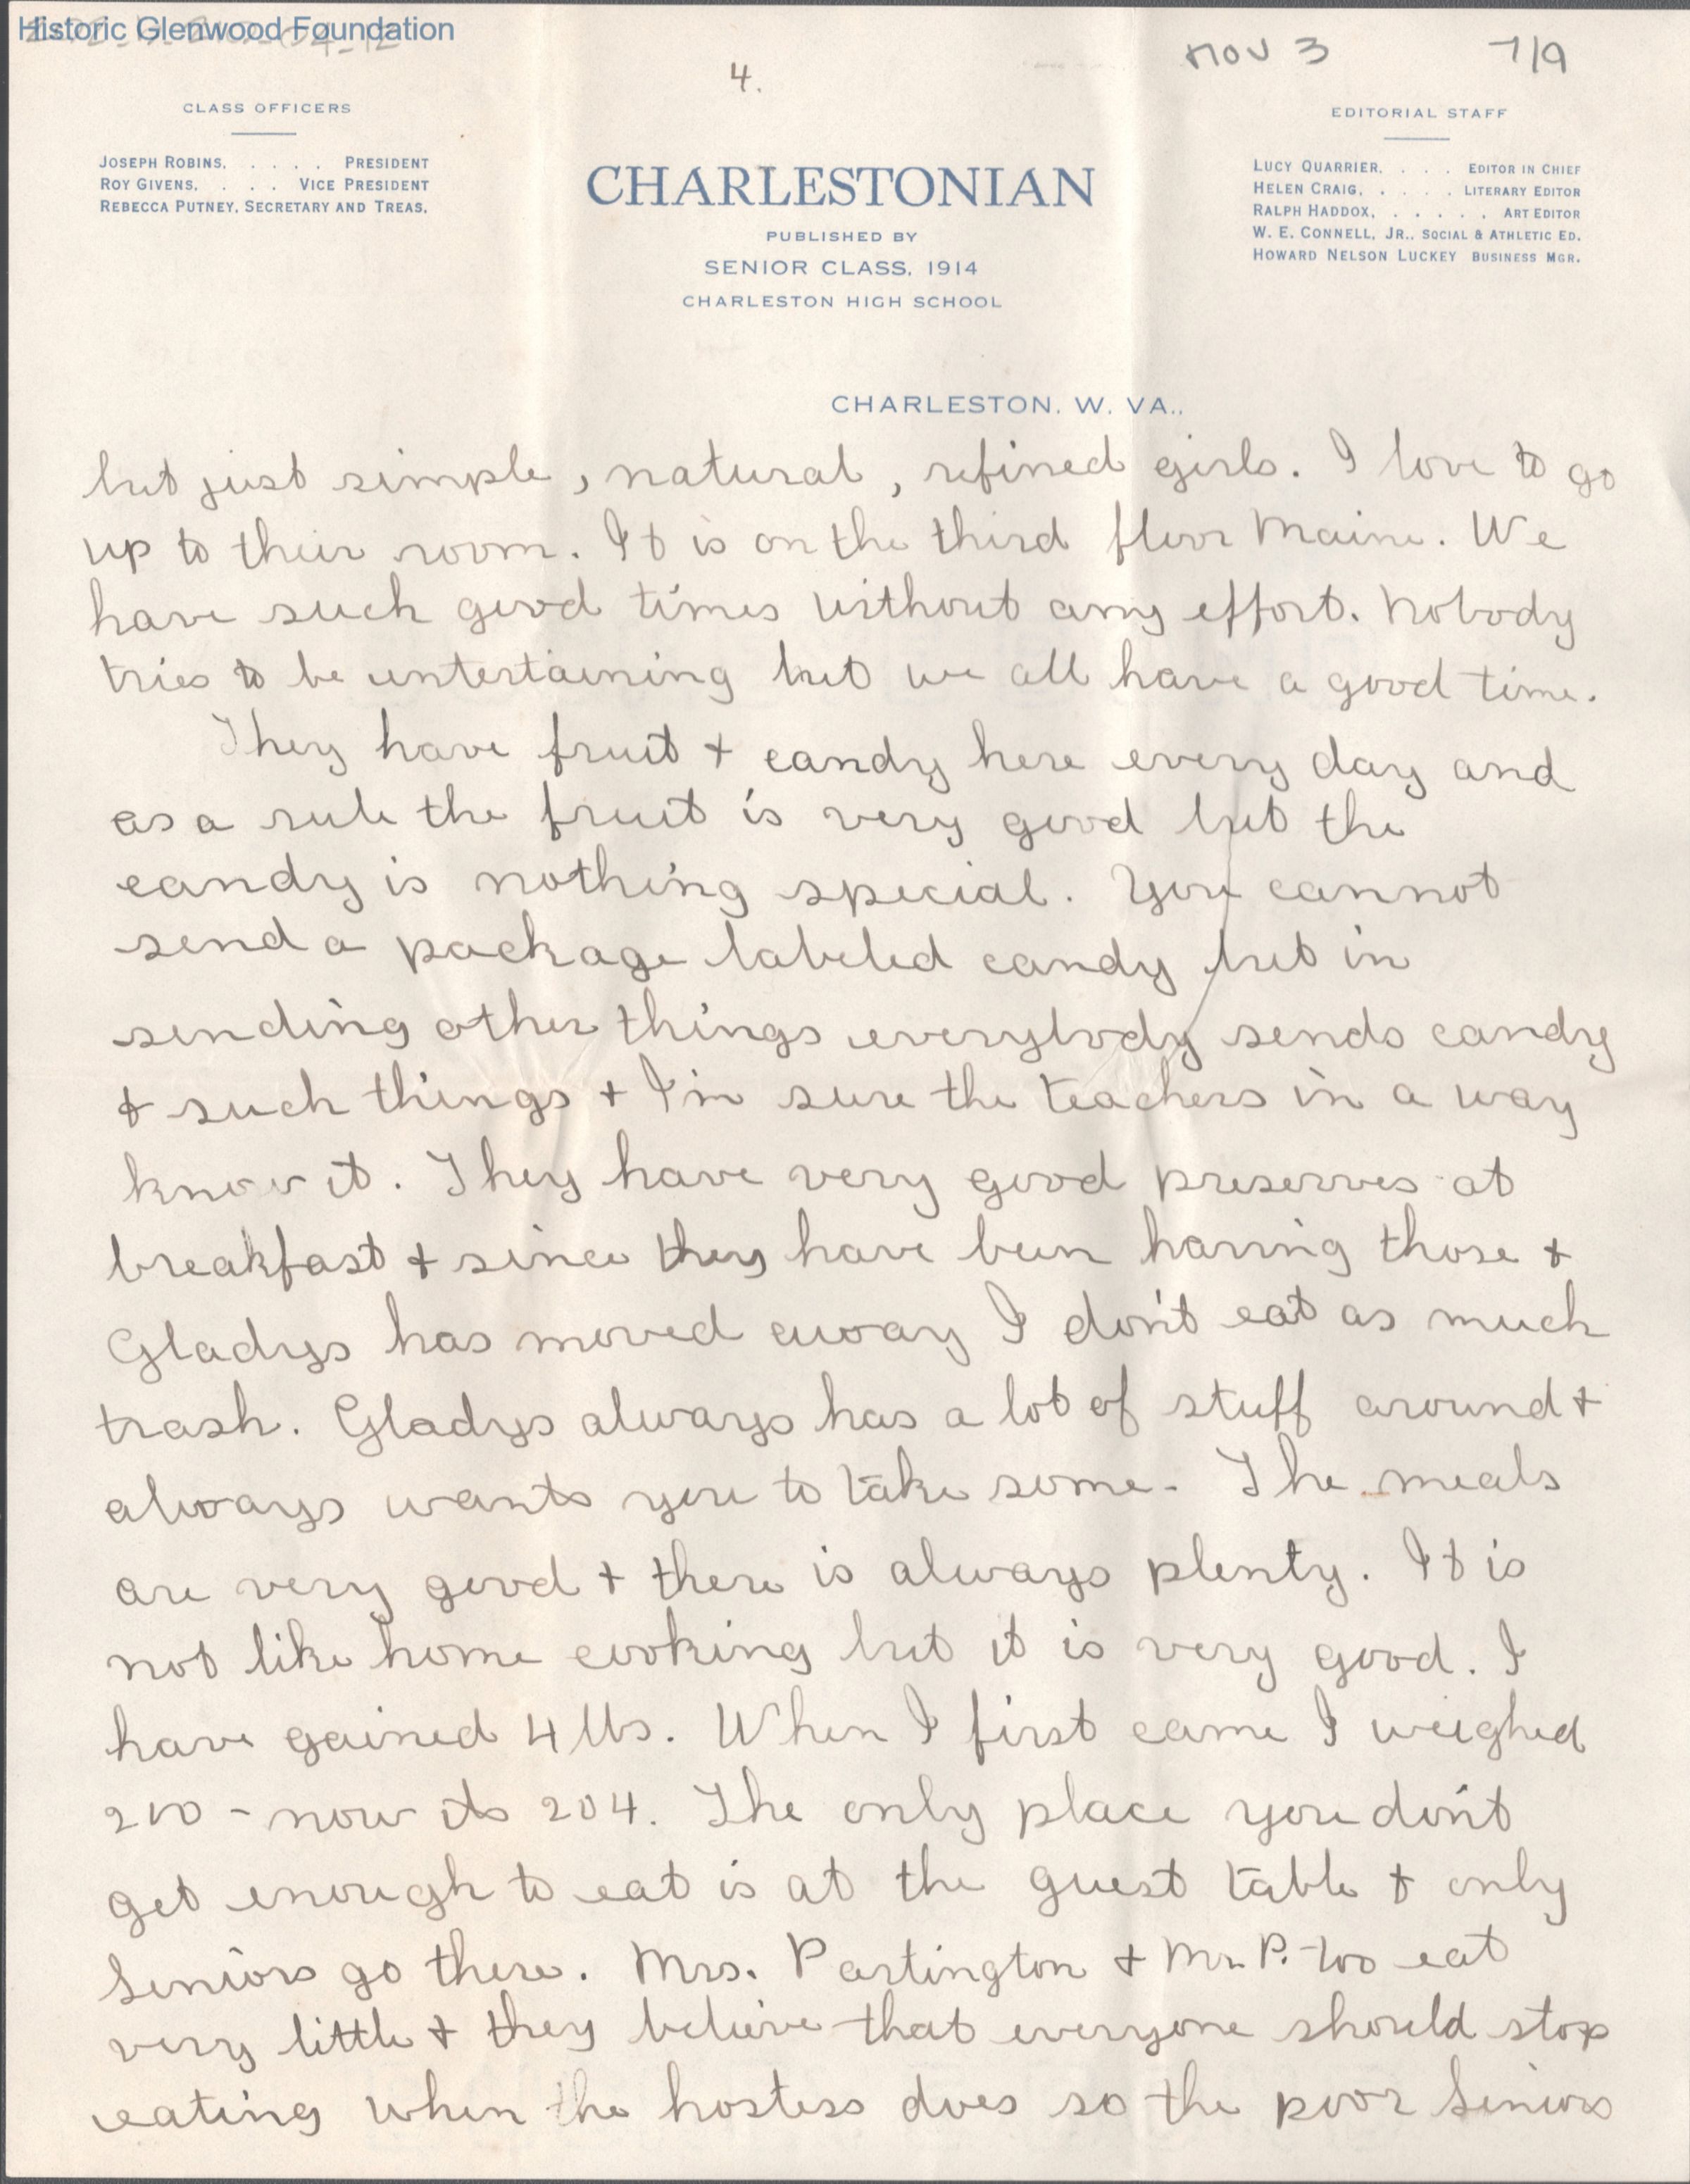 Historic Glenwood Foundation
4.
Nov 3 7/9
CLASS OFFICERS
JOSEPH ROBINS. . . . . PRESIDENT
ROY GIVENS. . . . VICE PRESIDENT
REBECCA PUTNEY. SECRETARY AND TREAS.
CHARLESTONIAN
PUBLISHED BY
SENIOR CLASS, 1914
CHARLESTON HIGH SCHOOL
EDITORIAL STAFF
LUCY QUARRIER. . . . EDITOR IN CHIEF
HELEN CRAIG. . . . . LITERARY EDITOR
RALPH HADDOX. . . . . . ART EDITOR
W. E. CONNELL, JR.. SOCIAL & ATHLETIC ED.
HOWARD NELSON LUCKEY BUSINESS MGR.
CHARLESTON. W. VA..
but just simple, natural, refined girls. I love to go
up to their room. It is on the third floor Maine. We
have such good times without any effort. Nobody
tries to be untertaining but we all have a good time.
They have fruit + candy here every day and
as a rule the fruit is very good but the
candy is nothing special. You cannot
send a package labeled candy but in
sending other things everybody sends candy
+ such things + I'm sure the teachers in a way
know it. They have very good preserves at
breakfast + since they have been having those +
Gladys has moved away I don't eat as much
trash. Gladys always has a lot of stuff around +
always wants you to take some. The meals
are very good + there is always plenty. It is
not like home cooking but it is very good. I
have gained 4 lbs. When I first came I weighed
200 - now its 204. The only place you don't
get enough to eat is at the guest table + only
Seniors go there. Mrs. Partington + Mr. P. too eat
very little + they believe that everyone should stop
eating when the hostess does so the poor Seniors